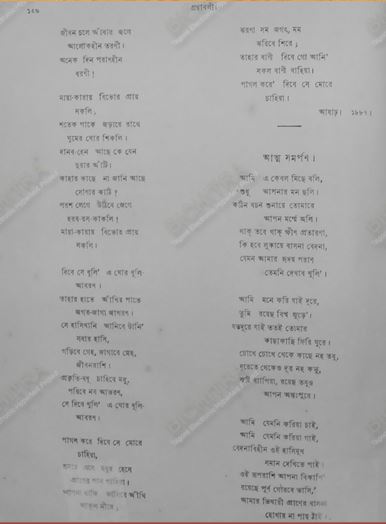 ১২৬
গ্রন্থাবলী।
জীবন চলে আঁধার জলে
আলোকহীন তরণী।
অনেক দিন পরাণহীন
ধরণী!
মায়া-কারায় বিভোর প্রায়
সকলি;
শতেক পাকে জড়ায়ে রাখে
ঘুমের ঘোর শিকলি।
দানব-হেন আছে কে যেন
দুয়ার আঁটি।
কাহার কাছে না জানি আছে
সোণার কাঠি?
পরশ লেগে উঠিবে জেগে
হরষ-রস-কাকলি!
মায়া-কারায় বিভোর প্রায়
সকলি।
দিবে সে খুলি' এ ঘোর ধূলি-
আবরণ।
তাহার হাতে আঁখির পাতে
জগত-জাগা জাগরণ।
সে হাসিখানি আনিবে টানি'
সবার হাসি,
গড়িবে গেহ, জাগাবে স্নেহ,
জীবনরাশি।
প্রকৃতি-বধূ চাহিবে মধু,
পরিবে নব আভরণ,
সে দিবে খুলি' এ ঘোর ধূলি-
আবরণ।
পাগল করে' দিবে সে মোরে
চাহিয়া,
হৃদয়ে এসে মধুর হেসে
প্রাণের গান গাহিয়া।
আপনা থাকি ভাসিবে আঁখি
আকুল নীরে,
ঝরণা সম জগৎ, মম
ঝরিবে শিরে;
তাহার বাণী দিবে গো আনি'
সকল বাণী বাহিয়া।
পাগল করে' দিবে সে মোরে
চাহিয়া।
আষাঢ়। ১৮৮৭।
আত্ম সমর্পণ।
আমি এ কেবল মিছে বলি,
শুধু আপনার মন ছলি।
কঠিন বচন শুনায়ে তোমারে
আপন মর্ম্মে জ্বলি।
থাক্ তবে থাক্ ক্ষীণ প্রতারণা,
কি হবে লুকায়ে বাসনা বেদনা,
যেমন আমার হৃদয় পরাণ
তেমনি দেখাব খুলি'।
আমি মনে করি যাই দূরে,
তুমি রয়েছ বিশ্ব জুড়ে'।
যতদূরে যাই ততই তোমার
কাছাকাছি ফিরি ঘুরে।
চোখে চোখে থেকে কাছে নহ তবু,
দূরেতে থেকেও দূর নহ কভু,
সৃষ্টি ব্যাপিয়া, রয়েছ তবুও
আপন অন্তঃপুরে।
আমি যেমনি করিয়া চাই,
আমি যেমনি করিয়া গাই,
বেদনাবিহীন ওই হাসিমুখ
সমান দেখিতে পাই।
ওই রূপরাশি আপনা বিকাশি'
রয়েছে পূর্ণ গৌরবে ভাসি',
আমার ভিখারী প্রাণের বাসনা
হোথায় না পায় ঠাঁই।